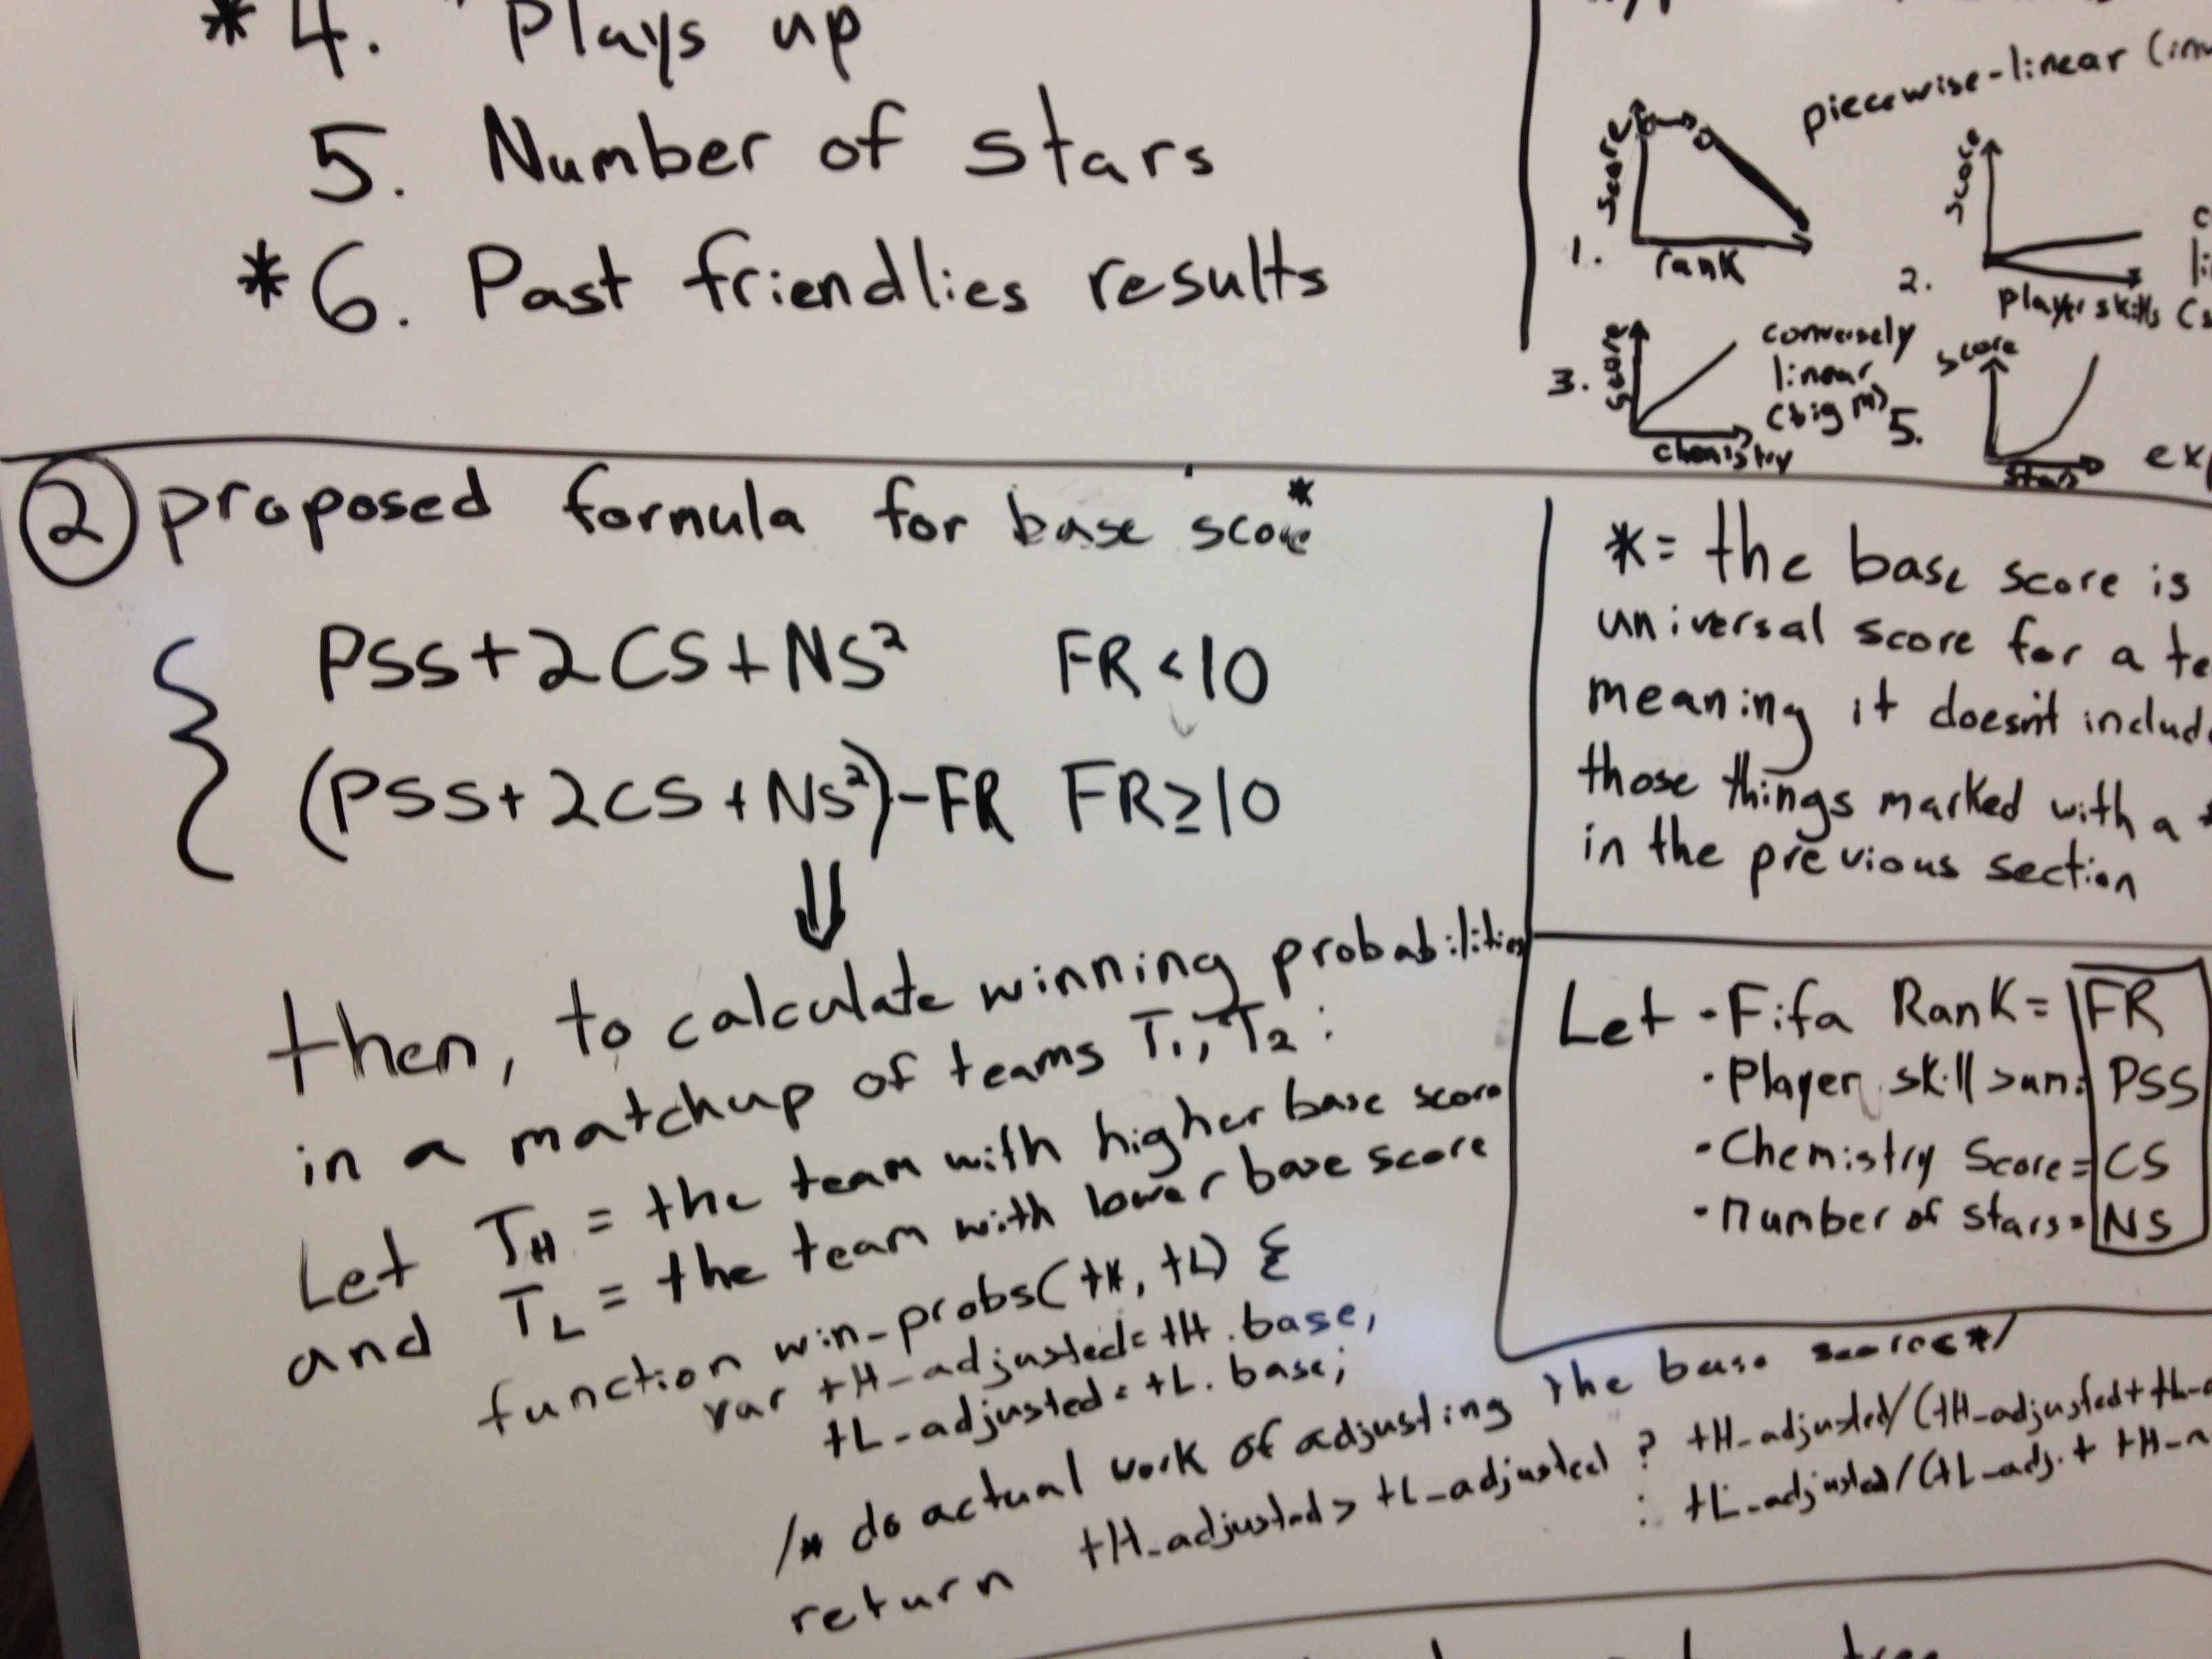 *4. "Plays up
5. Number of stars
*6. Past friendlies results
piecewise-linear
score
1. rank
score
2. player skills
3. score
chemistry
conversely
linear
(big m)
5. score
stars
② proposed formula for base score*
{ PSS + 2CS + NS² FR < 10
(PSS + 2CS + NS²) - FR FR ≥ 10
⇓
then, to calculate winning probabilities
in a matchup of teams T₁, T₂ :
Let T_H = the team with higher base score
and T_L = the team with lower base score
function win-probs(tH, tL) {
var tH_adjusted = tH.base,
tL_adjusted = tL.base;
/* do actual work of adjusting the base scores */
return tH_adjusted > tL_adjusted ? tH_adjusted/(tH_adjusted + tL-a
: tL_adjusted/(tL_adj. + tH-a
* = the base score is
universal score for a te
meaning it doesn't includ
those things marked with a *
in the previous section
Let • Fifa Rank = FR
• Player skill sum: PSS
• Chemistry Score = CS
• number of stars = NS
tree